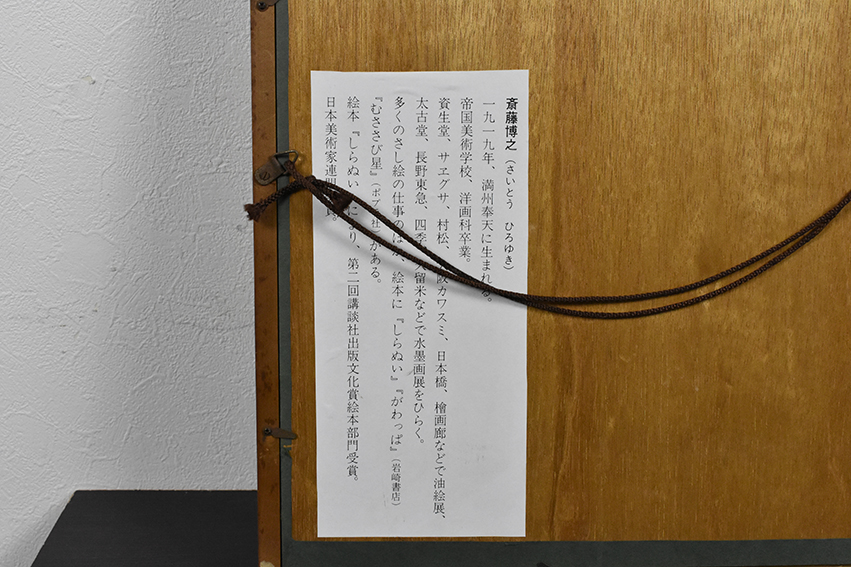 斎藤博之（さいとう　ひろゆき）
一九一九年、満州奉天に生まれる。
帝国美術学校、洋画科卒業。
資生堂、サヱグサ、村松、阪カワスミ、日本橋、檜画廊などで油絵展、
太古堂、長野東急、四季、久留米などで水墨画展をひらく。
多くのさし絵の仕事のほか、絵本に『しらぬい』『がわっぱ』（岩崎書店）
『むささび星』（ポプ社）がある。
絵本『しらぬい』により、第二回講談社出版文化賞絵本部門受賞。
日本美術家連盟員。